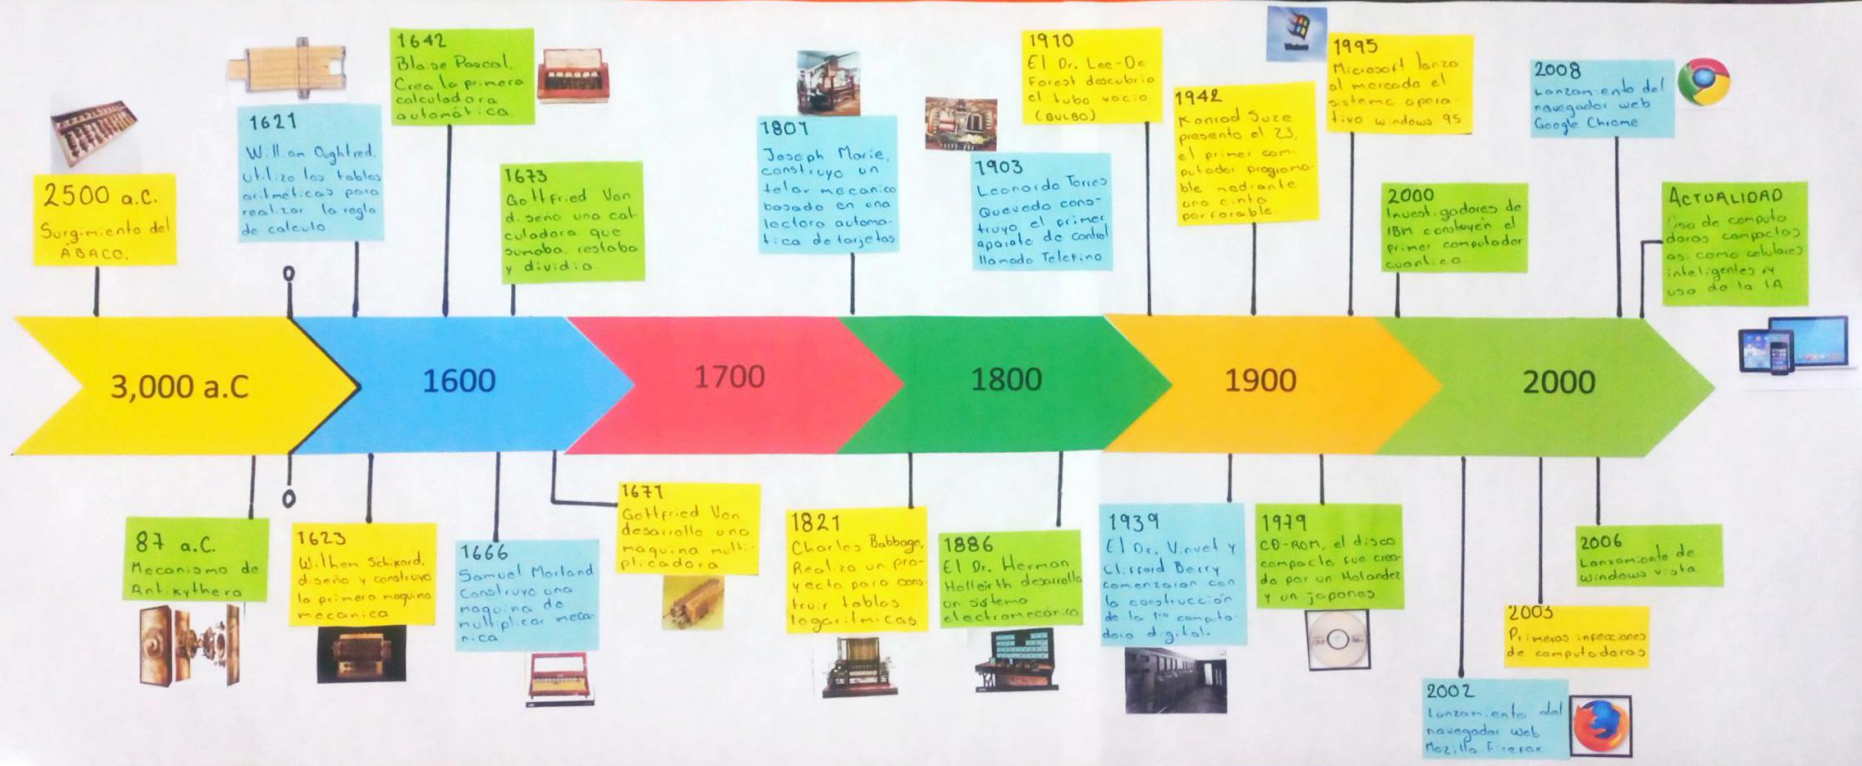 2500 a.C.
Surgimiento del
ÁBACO.
1621
William Oughtred,
utilizo las tablas
aritméticas para
realizar la regla
de calculo
1642
Blaise Pascal,
Crea la primera
calculadora
automática.
1673
Gottfried Von
diseño una cal-
culadora que
sumaba, restaba
y dividia
1801
Joseph Marie,
construyo un
telar mecanico
basado en una
lectora automa-
tica de tarjetas
1903
Leonardo Torres
Quevedo cons-
truyo el primer
aparato de control
llamado Telekino
1910
El Dr. Lee-De
Forest descubrio
el tubo vacio
(BULBO)
1942
Konrad Suze
presento el Z3,
el primer com-
putador programa-
ble mediante
una cinta
perforable.
Windows
1995
Microsoft lanza
al mercado el
sistema opera-
tivo windows 95
2000
Investigadores de
IBM construyen el
primer computador
cuantico.
2008
Lanzamiento del
navegador web
Google Chrome
ACTUALIDAD
Uso de computa
doras compactas
asi como celulares
inteligentes y
uso de la IA
3,000 a.C
1600
1700
1800
1900
2000
87 a.C.
Mecanismo de
Antikythera
1623
Wilhem Schikard,
diseño y construyo
la primera maquina
mecanica
1666
Samuel Morland
Construyo una
maquina de
multiplicar meca-
nica
1671
Gottfried Von
desarrollo una
maquina multi-
plicadora
1821
Charles Babbage,
Realizo un pro-
yecto para cons-
truir tablas
logaritmicas
1886
El Dr. Herman
Holleirth desarrollo
un sistema
electromecánico
1939
El Dr. y
Clifford Berry
comenzaron con
la construcción
de la 1ra computa-
dora digital.
1979
CD-ROM, el disco
compacto fue crea-
do por un Holandez
y un japones
2002
Lanzamiento del
navegador web
Mozilla Firefox
2003
Primeras infecciones
de computadoras
2006
Lanzamiento de
windows vista